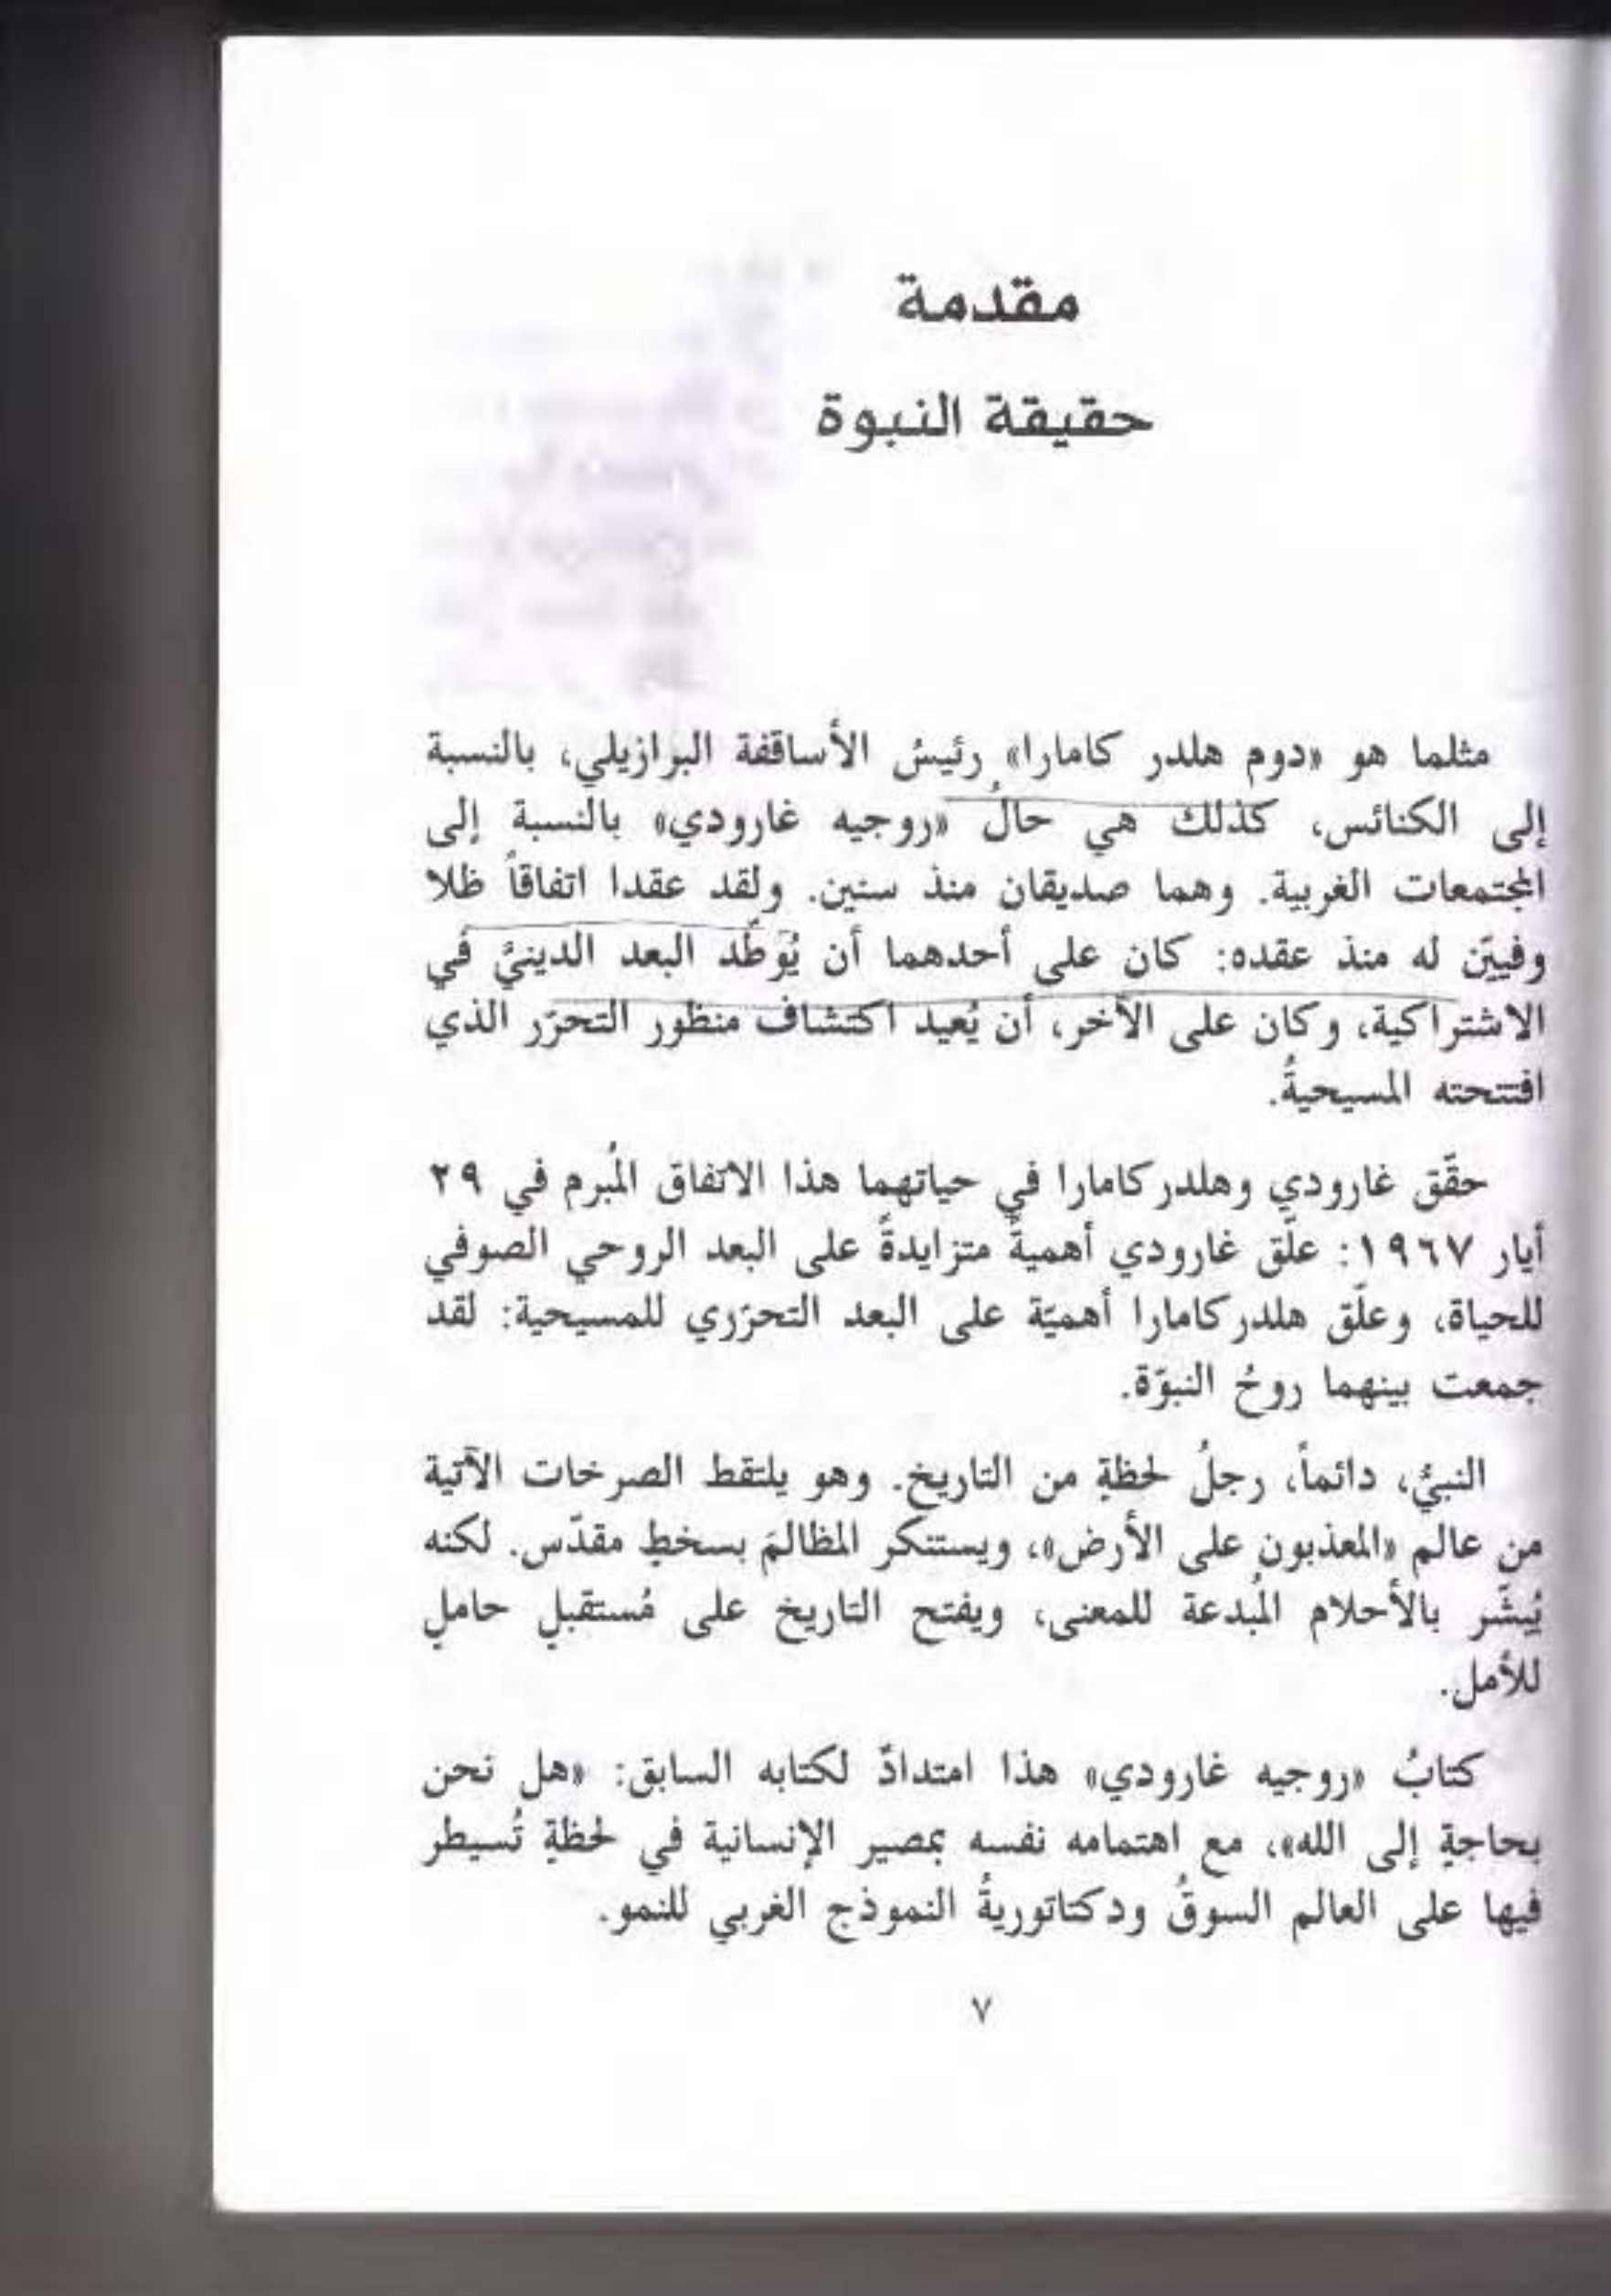 مقدمة
حقيقة النبوة
مثلما هو «دوم هلدر كامارا» رئيسُ الأساقفة البرازيلي، بالنسبة
إلى الكنائس، كذلك هي حالُ «روجيه غارودي» بالنسبة إلى
المجتمعات الغربية. وهما صديقان منذ سنين. ولقد عقدا اتفاقاً ظلا
وفييّن له منذ عقده: كان على أحدهما أن يُوَطّد البعد الدينيَّ في
الاشتراكية، وكان على الآخر، أن يُعيد اكتشاف منظور التحرّر الذي
افتتحته المسيحيةُ.
حقّق غارودي وهلدر كامارا في حياتهما هذا الاتفاق المُبرم في ٢٩
أيار ١٩٦٧: علّق غارودي أهميةً متزايدةً على البعد الروحي الصوفي
للحياة، وعلّق هلدر كامارا أهميّة على البعد التحرّري للمسيحية: لقد
جمعت بينهما روحُ النبوّة.
النبيُّ، دائماً، رجلُ لحظةٍ من التاريخ. وهو يلتقط الصرخات الآتية
من عالم «المعذبون على الأرض»، ويستنكر المظالمَ بسخطٍ مقدّس. لكنه
يُبشّر بالأحلام المُبدعة للمعنى، ويفتح التاريخ على مُستقبلٍ حاملٍ
للأمل.
كتابُ «روجيه غارودي» هذا امتدادٌ لكتابه السابق: «هل نحن
بحاجةٍ إلى الله»، مع اهتمامه نفسه بمصير الإنسانية في لحظةٍ تُسيطر
فيها على العالم السوقُ ودكتاتوريةُ النموذج الغربي للنمو.
٧